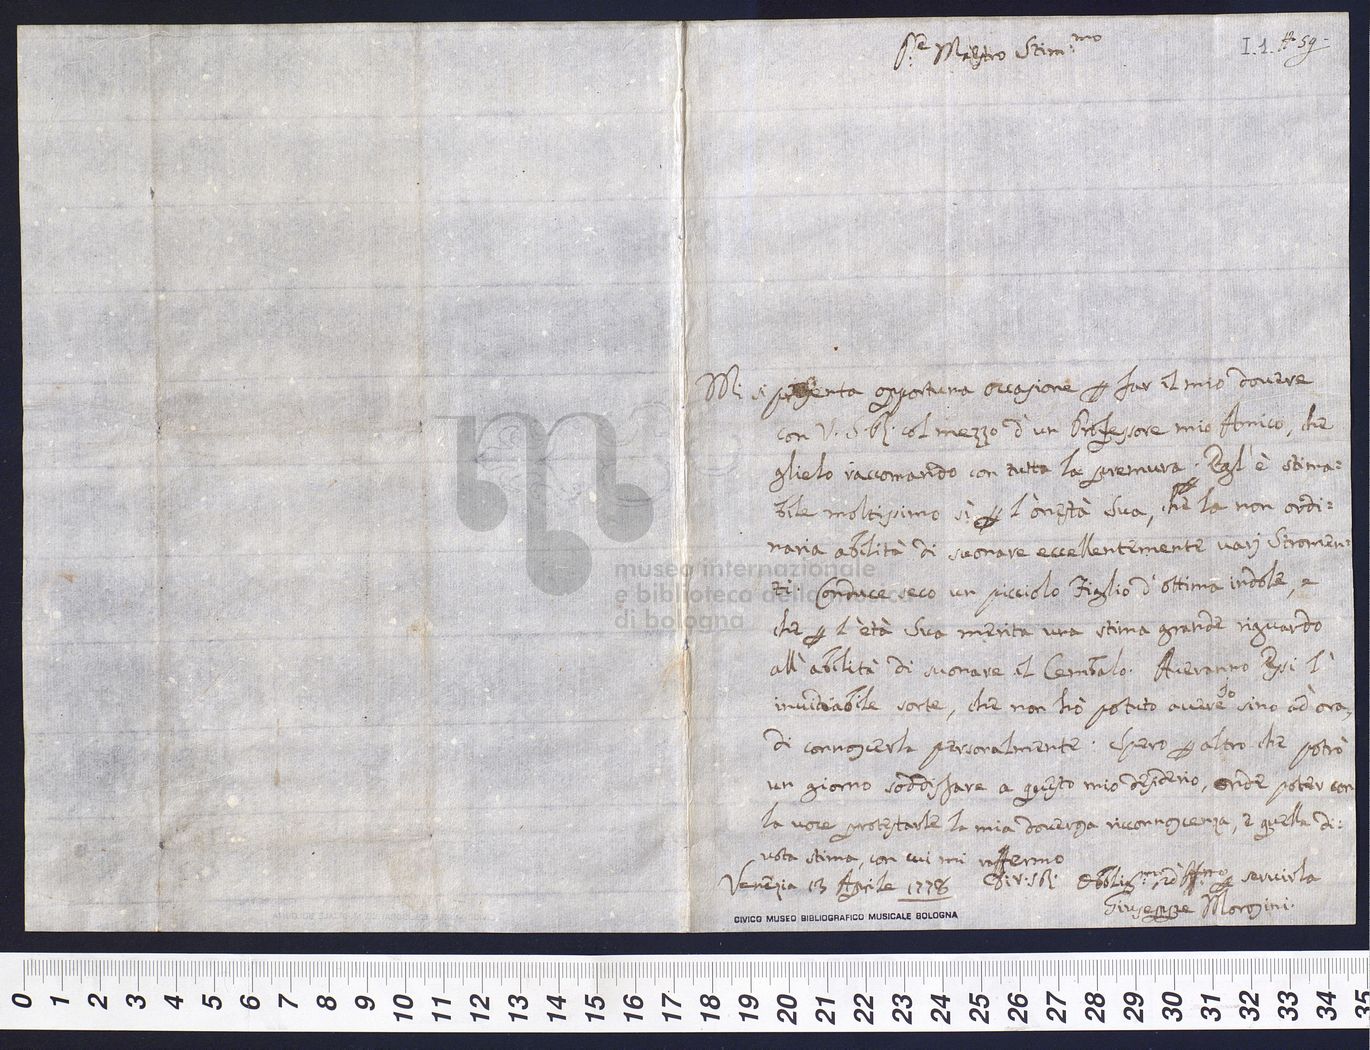 I.1. 59
Sr. Maestro Stim.mo
Mi si presenta opportuna occasione p far il mio dovere
con V. S. Ill. col mezzo d'un Professore mio Amico, che
glielo raccomando con tutta la premura. Egl'è stima=
bile moltissimo sì p l'onestà sua, che p la non ordi=
naria abilità di suonare eccellentemente varj Stromen=
ti. Conduce seco un picciolo Figlio d'ottima indole, e
che p l'età sua merita una stima grande riguardo
all'abilità di suonare il Cembalo. Averanno Essi l'
invidiabile sorte, che non hò potuto avere Io sino ad ora,
di connoscerla personalmente. Spero p altro che potrò
un giorno soddisfare a questo mio desiderio, onde poter con
la voce protestarle la mia doverosa riconnoscenza, e quella di=
vota stima, con cui mi raffermo
Venezia 13 Aprile 1778 Di V. S. Ill. Obblig.mo p servirla
Giuseppe Morgini.
CIVICO MUSEO BIBLIOGRAFICO MUSICALE BOLOGNA
museo internazionale
e biblioteca della musica
di bologna
0 1 2 3 4 5 6 7 8 9 10 11 12 13 14 15 16 17 18 19 20 21 22 23 24 25 26 27 28 29 30 31 32 33 34 35